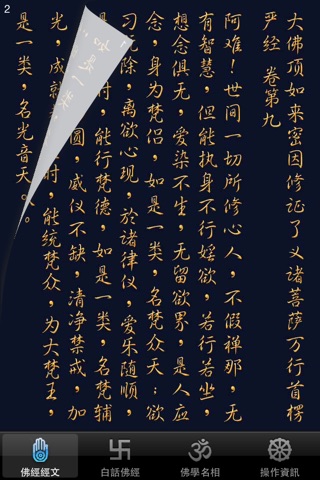 2
大佛顶如来密因修证了义诸菩萨万行首楞
严经 卷第九
阿难！世间一切所修心人，不假禅那，无
有智慧，但能执身不行婬欲，若行若坐，
想念俱无，爱染不生，无留欲界，是人应
念，身为梵侣，如是一类，名梵众天；欲
习既除，离欲心现，於诸律仪，爱乐随顺，
时，能行梵德，如是一类，名梵辅
圆，威仪不缺，清净禁戒，加
时，能统梵众，为大梵王，
是一类，名光音天。
佛經經文
白話佛經
佛學名相
操作資訊